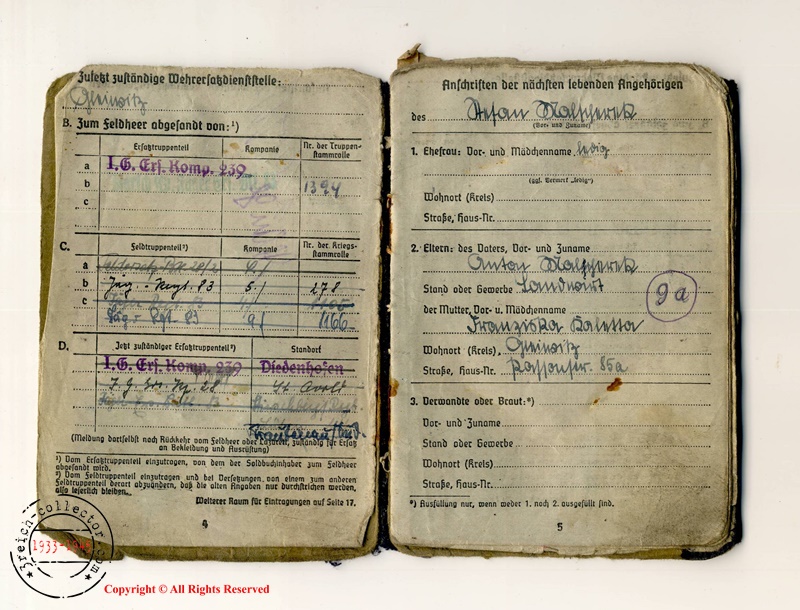 Zuletzt zuständige Wehrersatzdienststelle:
Gleiwitz
B. Zum Feldheer abgesandt von:¹)
Ersatztruppenteil Kompanie Nr. der Truppen-
stammrolle
a I. G. Ers. Komp. 239
b 1394
c
C. Feldtruppenteil²) Kompanie Nr. der Kriegs-
stammrolle
a
b Jäg.-Regt. 83 5./ 278
c
Jäg.-Rgt. 83 9./ 1166
D. Jetzt zuständiger Ersatztruppenteil³) Standort
I. G. Ers. Komp. 239 Diedenhofen
St. Avold
Trautenau
(Meldung dortselbst nach Rückkehr vom Feldheer oder Lazarett, zuständig für Ersatz
an Bekleidung und Ausrüstung)
¹) Vom Ersatztruppenteil einzutragen, von dem der Soldbuchinhaber zum Feldheer
abgesandt wird.
²) Vom Feldtruppenteil einzutragen und bei Versetzungen von einem zum anderen
Feldtruppenteil derart abzuändern, daß die alten Angaben nur durchstrichen werden,
also leserlich bleiben.
Weiterer Raum für Eintragungen auf Seite 17.
4
Anschriften der nächsten lebenden Angehörigen
des Stefan Malscherek
(Vor- und Zuname)
1. Ehefrau: Vor- und Mädchenname ledig
(ggf. Vermerk „ledig")
Wohnort (Kreis)
Straße, Haus-Nr.
2. Eltern: des Vaters, Vor- und Zuname
Anton Malscherek
Stand oder Gewerbe Landwirt
9a
der Mutter, Vor- u. Mädchenname
Franziska Kaletta
Wohnort (Kreis) Gleiwitz
Straße, Haus-Nr. 85a
3. Verwandte oder Braut:*)
Vor- und Zuname
Stand oder Gewerbe
Wohnort (Kreis)
Straße, Haus-Nr.
*) Ausfüllung nur, wenn weder 1. noch 2. ausgefüllt sind.
5
3reich-collector.com
Copyright © All Rights Reserved